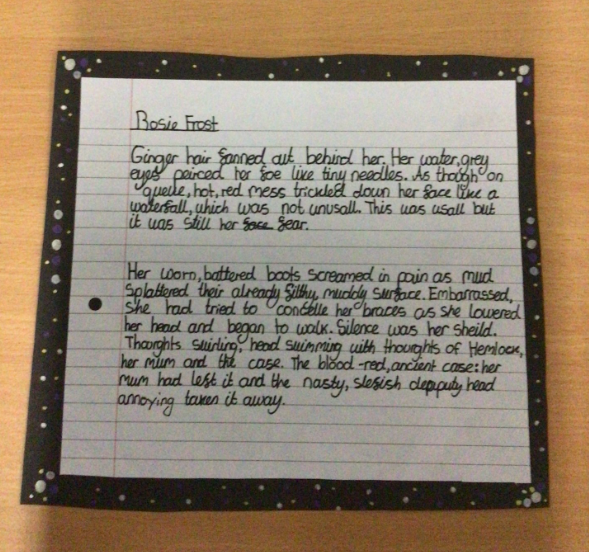 Rosie Frost
Ginger hair fanned out behind her. Her water,grey
eyes peirced her foe like tiny needles. As though on
queue, hot, red mess trickled down her face like a
waterfall, which was not unusall. This was usall but
it was still her face fear.
Her worn, battered boots screamed in pain as mud
splattered their already filthy, muddy surface. Embarrassed,
she had tried to her braces as she lowered
her head and began to walk. Silence was her sheild.
Thoughts swirling, head swimming with thoughts of Hemlock,
her mum and the case. The blood-red, ancient case: her
mum had left it and the nasty, slefish depputy head
annoying taken it away.